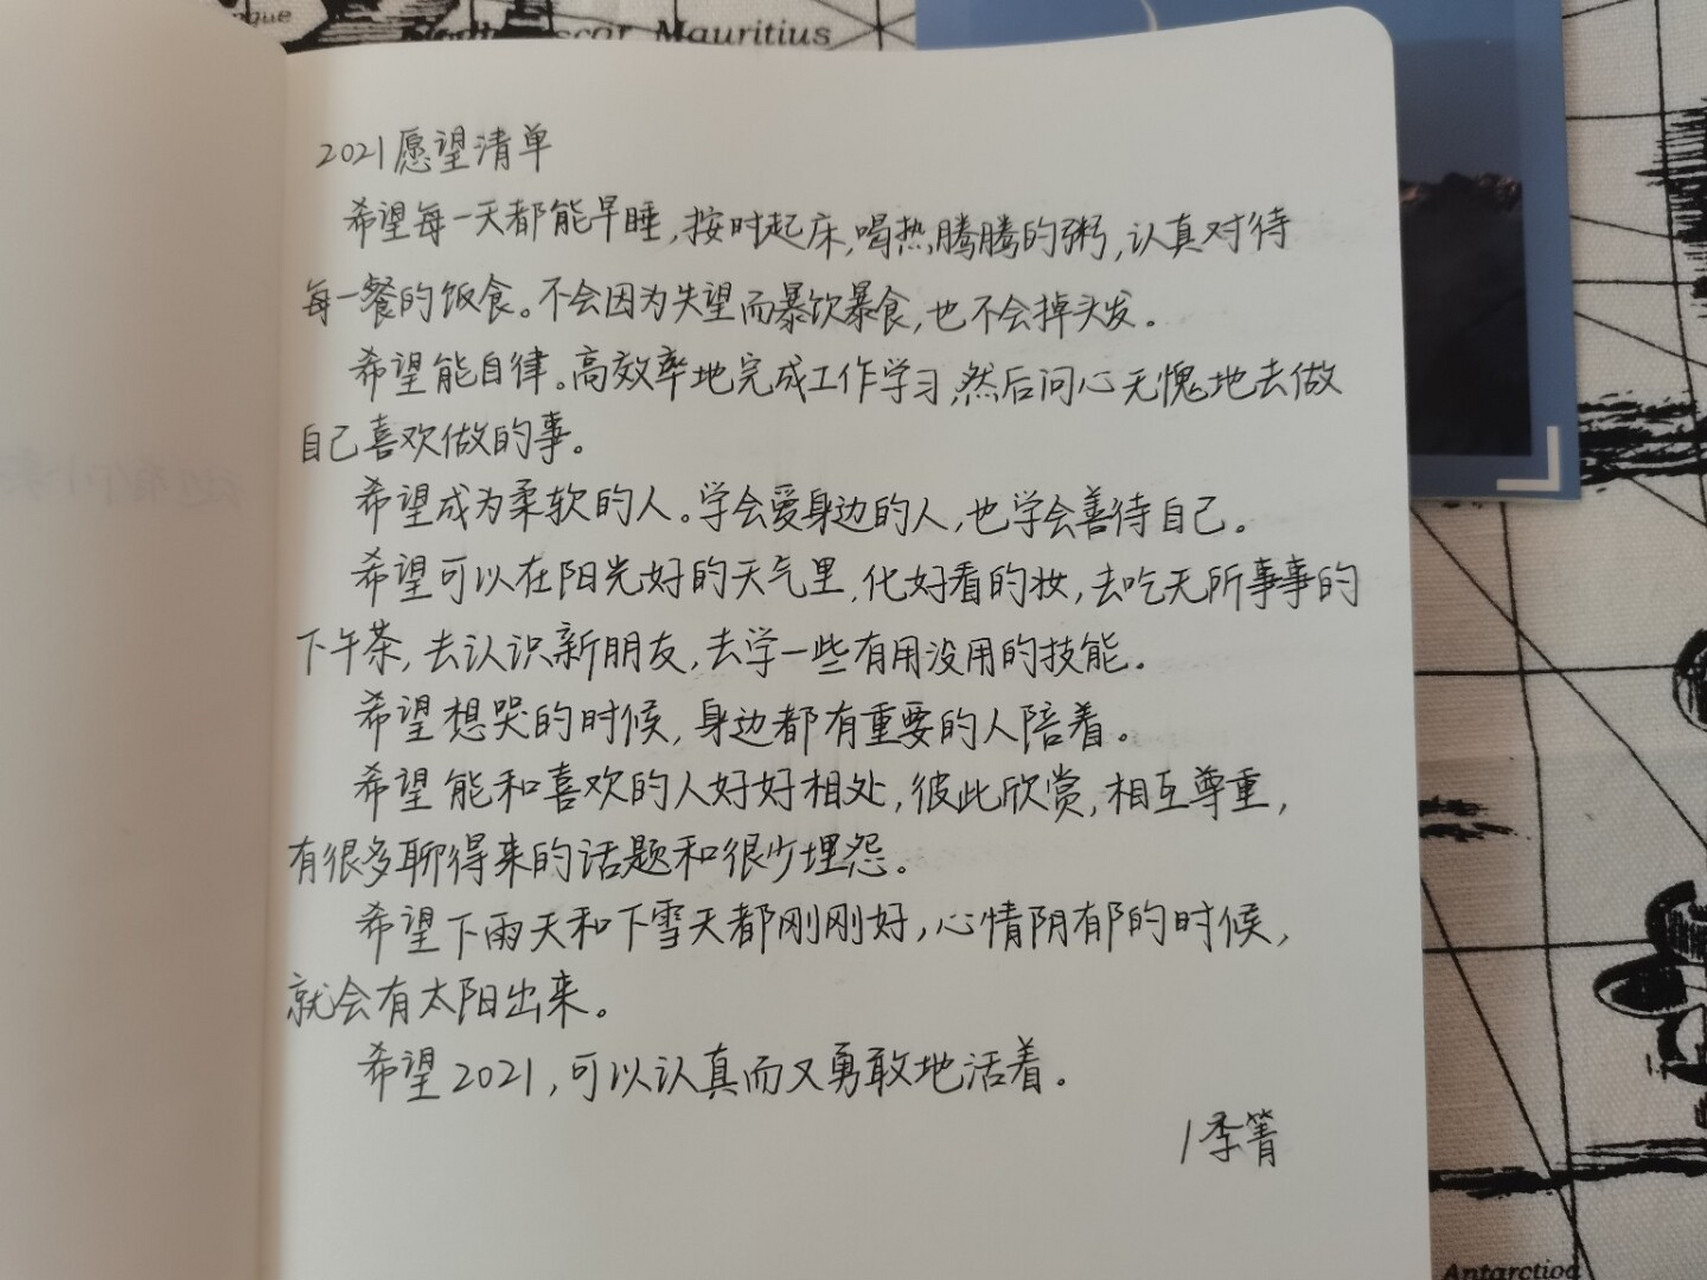 Mauritius
2021愿望清单
希望每一天都能早睡,按时起床,喝热腾腾的粥,认真对待
每一餐的饭食。不会因为失望而暴饮暴食,也不会掉头发。
希望能自律。高效率地完成工作学习,然后问心无愧地去做
自己喜欢做的事。
希望成为柔软的人。学会爱身边的人,也学会善待自己。
希望可以在阳光好的天气里,化好看的妆,去吃无所事事的
下午茶,去认识新朋友,去学一些有用没用的技能。
希望想哭的时候,身边都有重要的人陪着。
希望能和喜欢的人好好相处,彼此欣赏,相互尊重,
有很多聊得来的话题和很少埋怨。
希望下雨天和下雪天都刚刚好,心情阴郁的时候,
就会有太阳出来。
希望2021,可以认真而又勇敢地活着。
/季箐